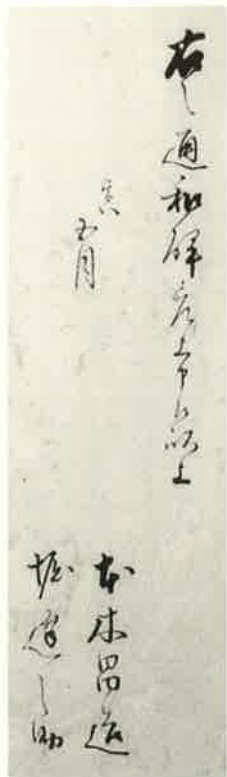 右之通和解差上申候以上
寅
五月
本木昌造
堀達之助